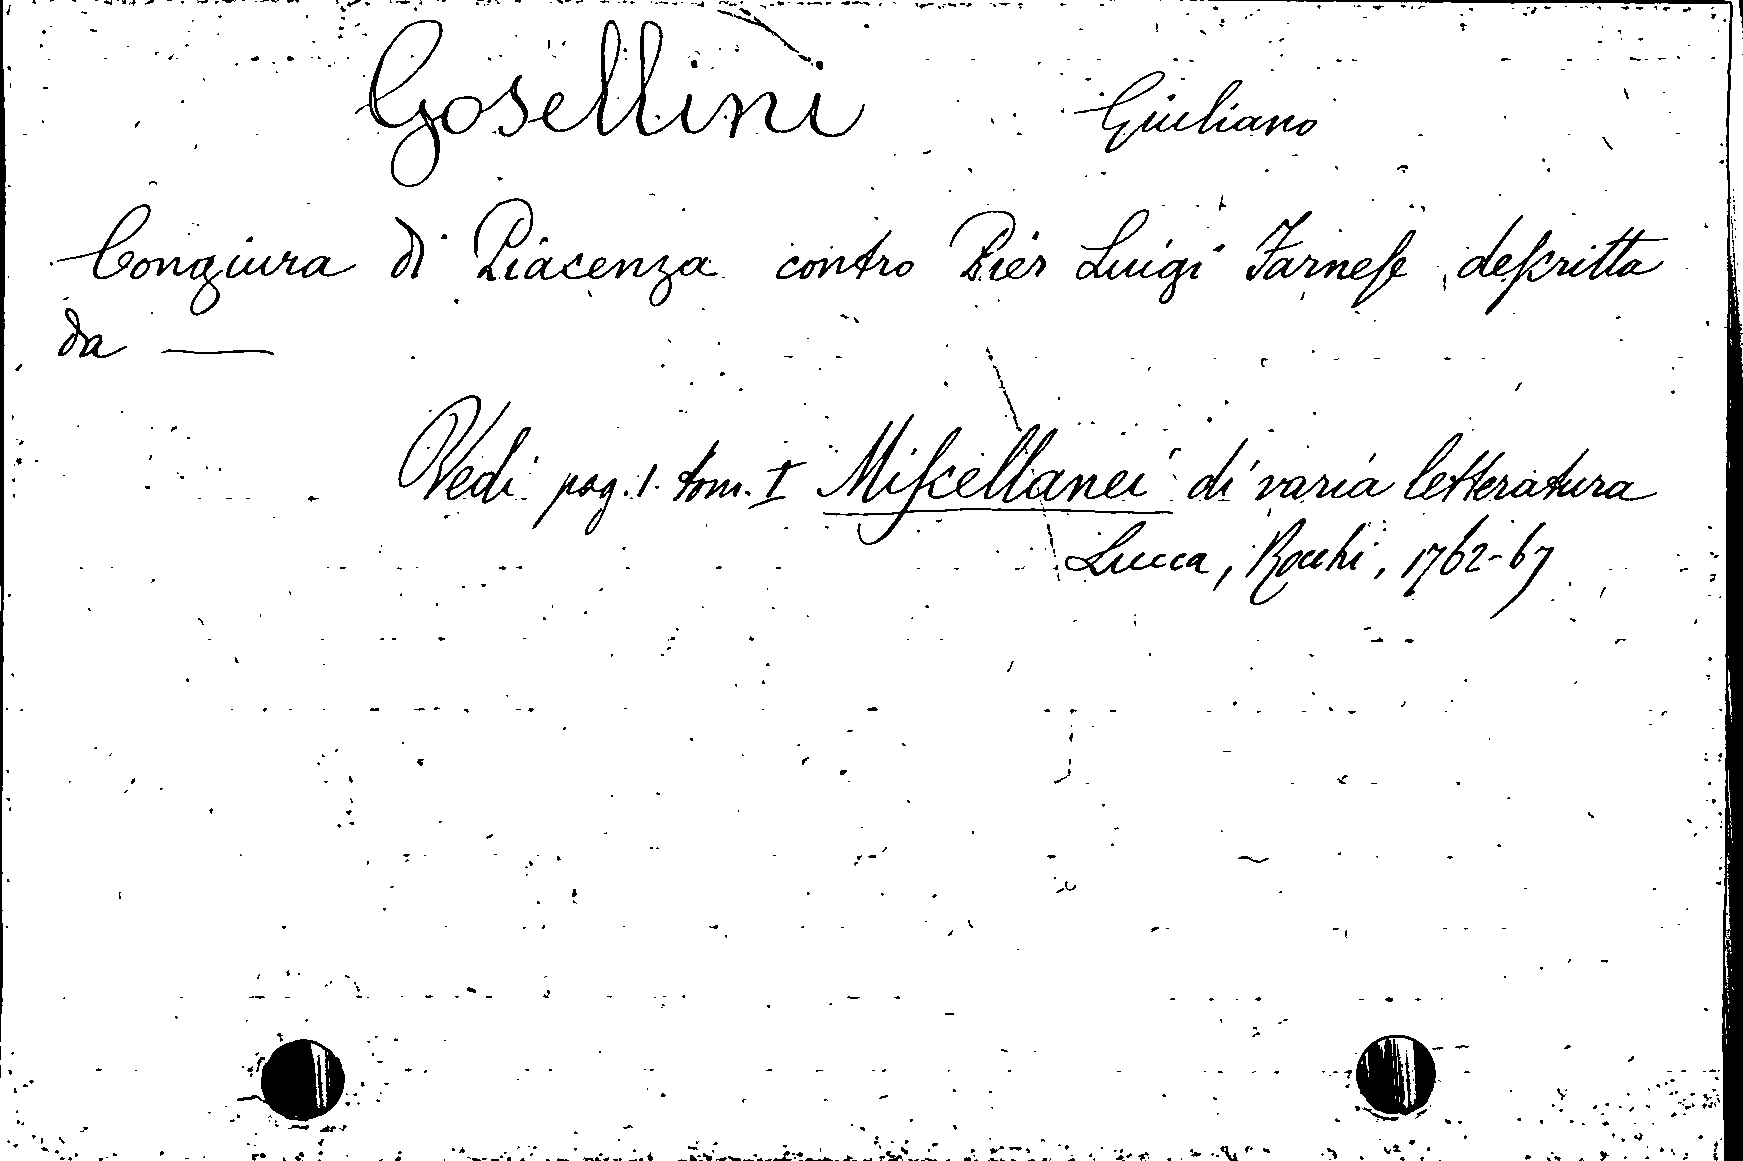 Gosellini Giuliano
Congiura di Piacenza contro Pier Luigi Farnese descritta
da —
Vedi pag. 1. tom. I Miscellanei di varia letteratura
Lucca, Rocchi, 1762-67